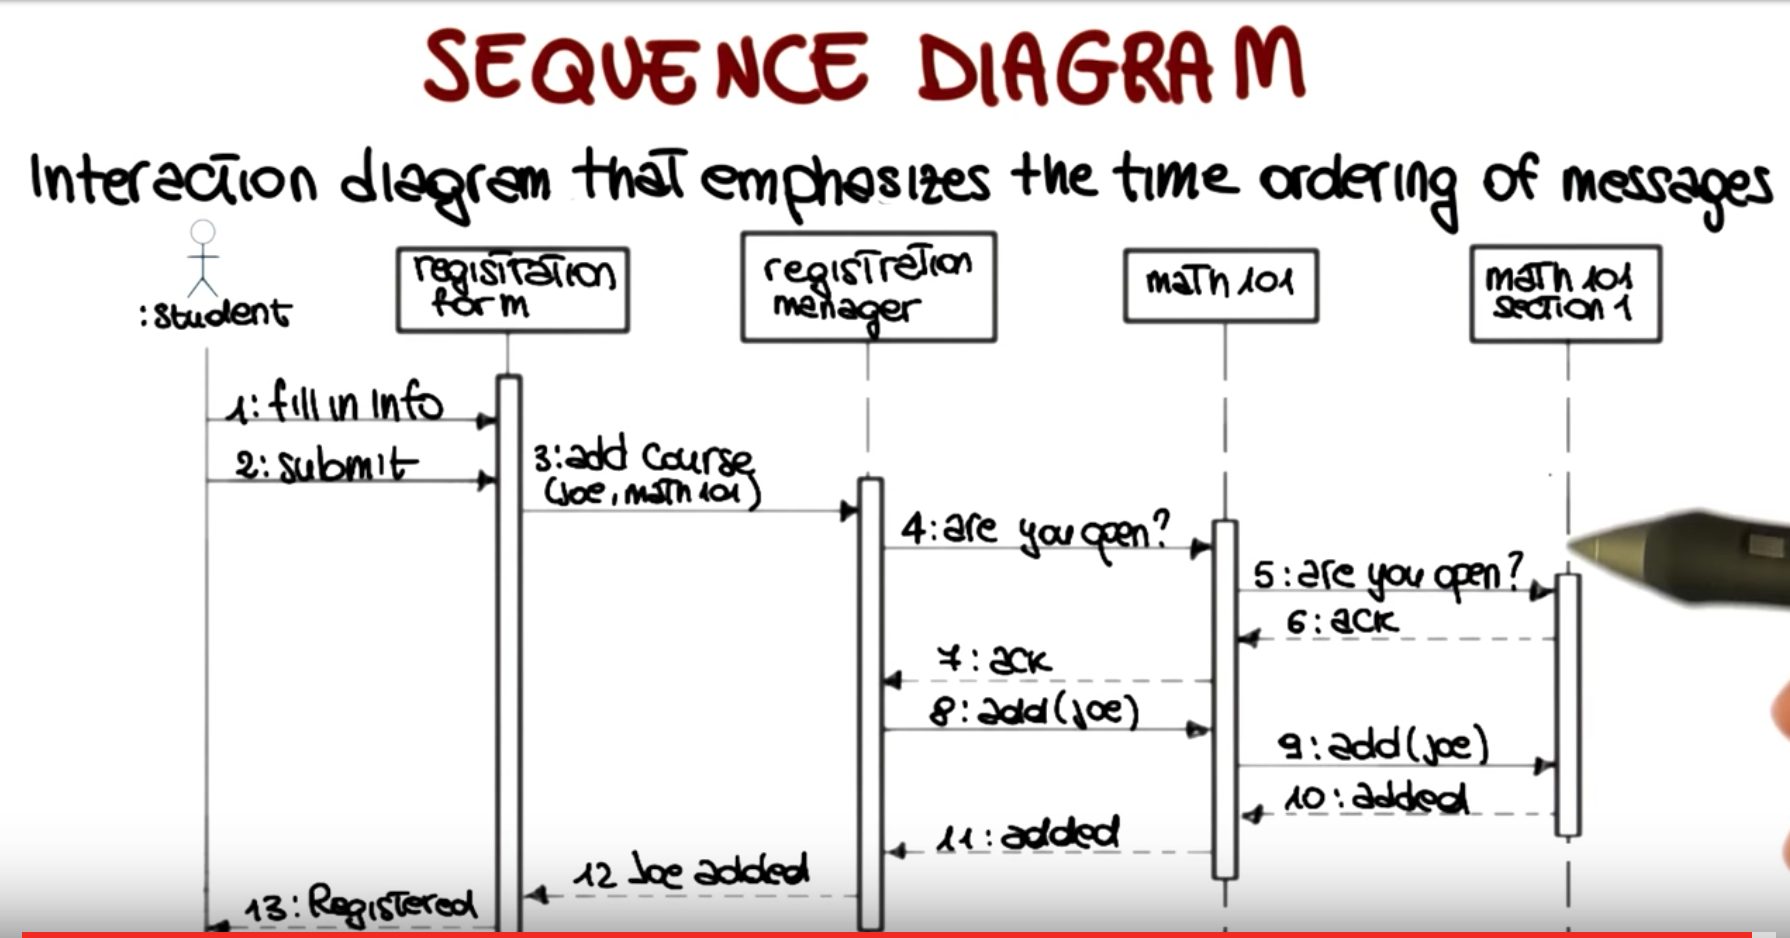 SEQUENCE DIAGRAM
Interaction diagram that emphasizes the time ordering of messages
:student
registration
form
registration
manager
math 101
math 101
section 1
1: fill in info
2: submit
3: add course
(joe, math 101)
4: are you open?
5: are you open?
6: ack
7: ack
8: add (joe)
9: add (joe)
10: added
11: added
12 Joe added
13: Registered